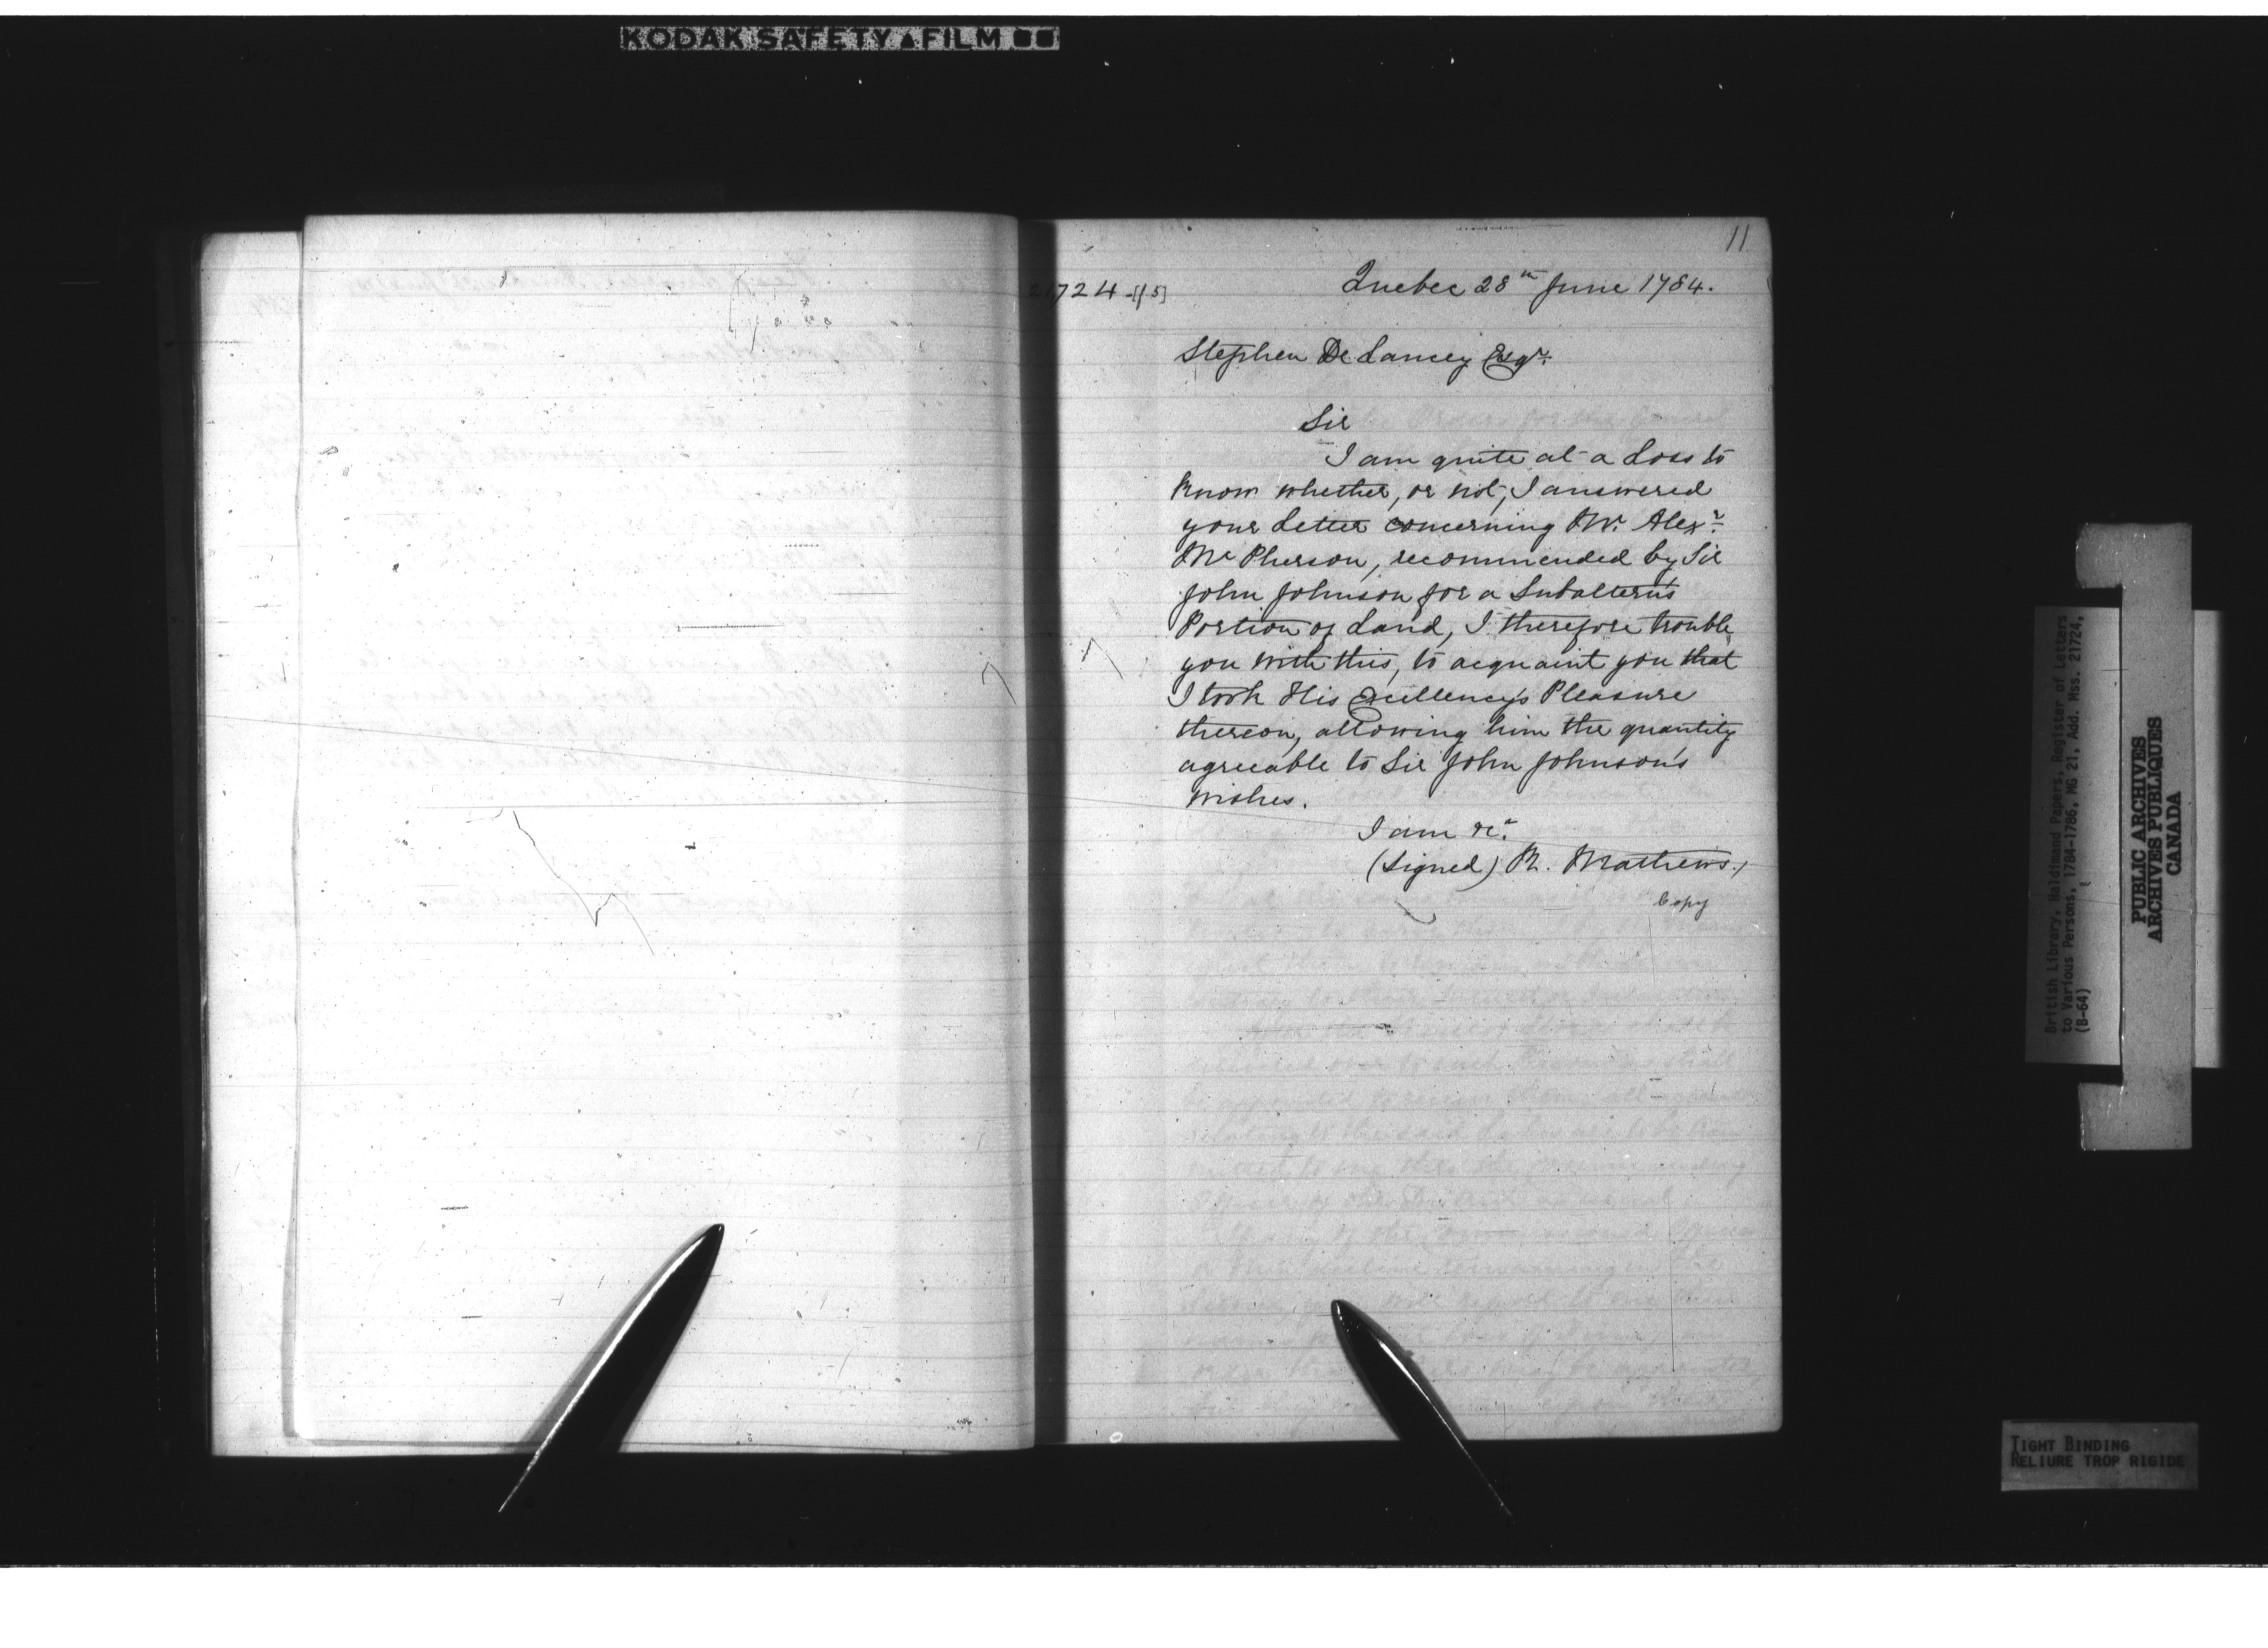 KODAK SAFETY FILM
11
21724-[f5]
Quebec 28th June 1784.
Stephen De Lancey Esqr.
Sir
I am quite at a Loss to
know whether, or not, I answered
your Letter concerning Mr. Alexr.
McPherson, recommended by Sir
John Johnson for a Subaltern's
Portion of Land, I therefore trouble
you with this, to acquaint you that
I took His Excellency's Pleasure
thereon, allowing him the quantity
agreeable to Sir John Johnson's
wishes.
I am &c.
(signed) R. Mathews.
Copy
British Library. Haldimand Papers. Register of Letters
to Various Persons, 1784-1786, MG 21, Add. Mss. 21724,
(B-64)
PUBLIC ARCHIVES
ARCHIVES PUBLIQUES
CANADA
TIGHT BINDING
RELIURE TROP RIGIDE